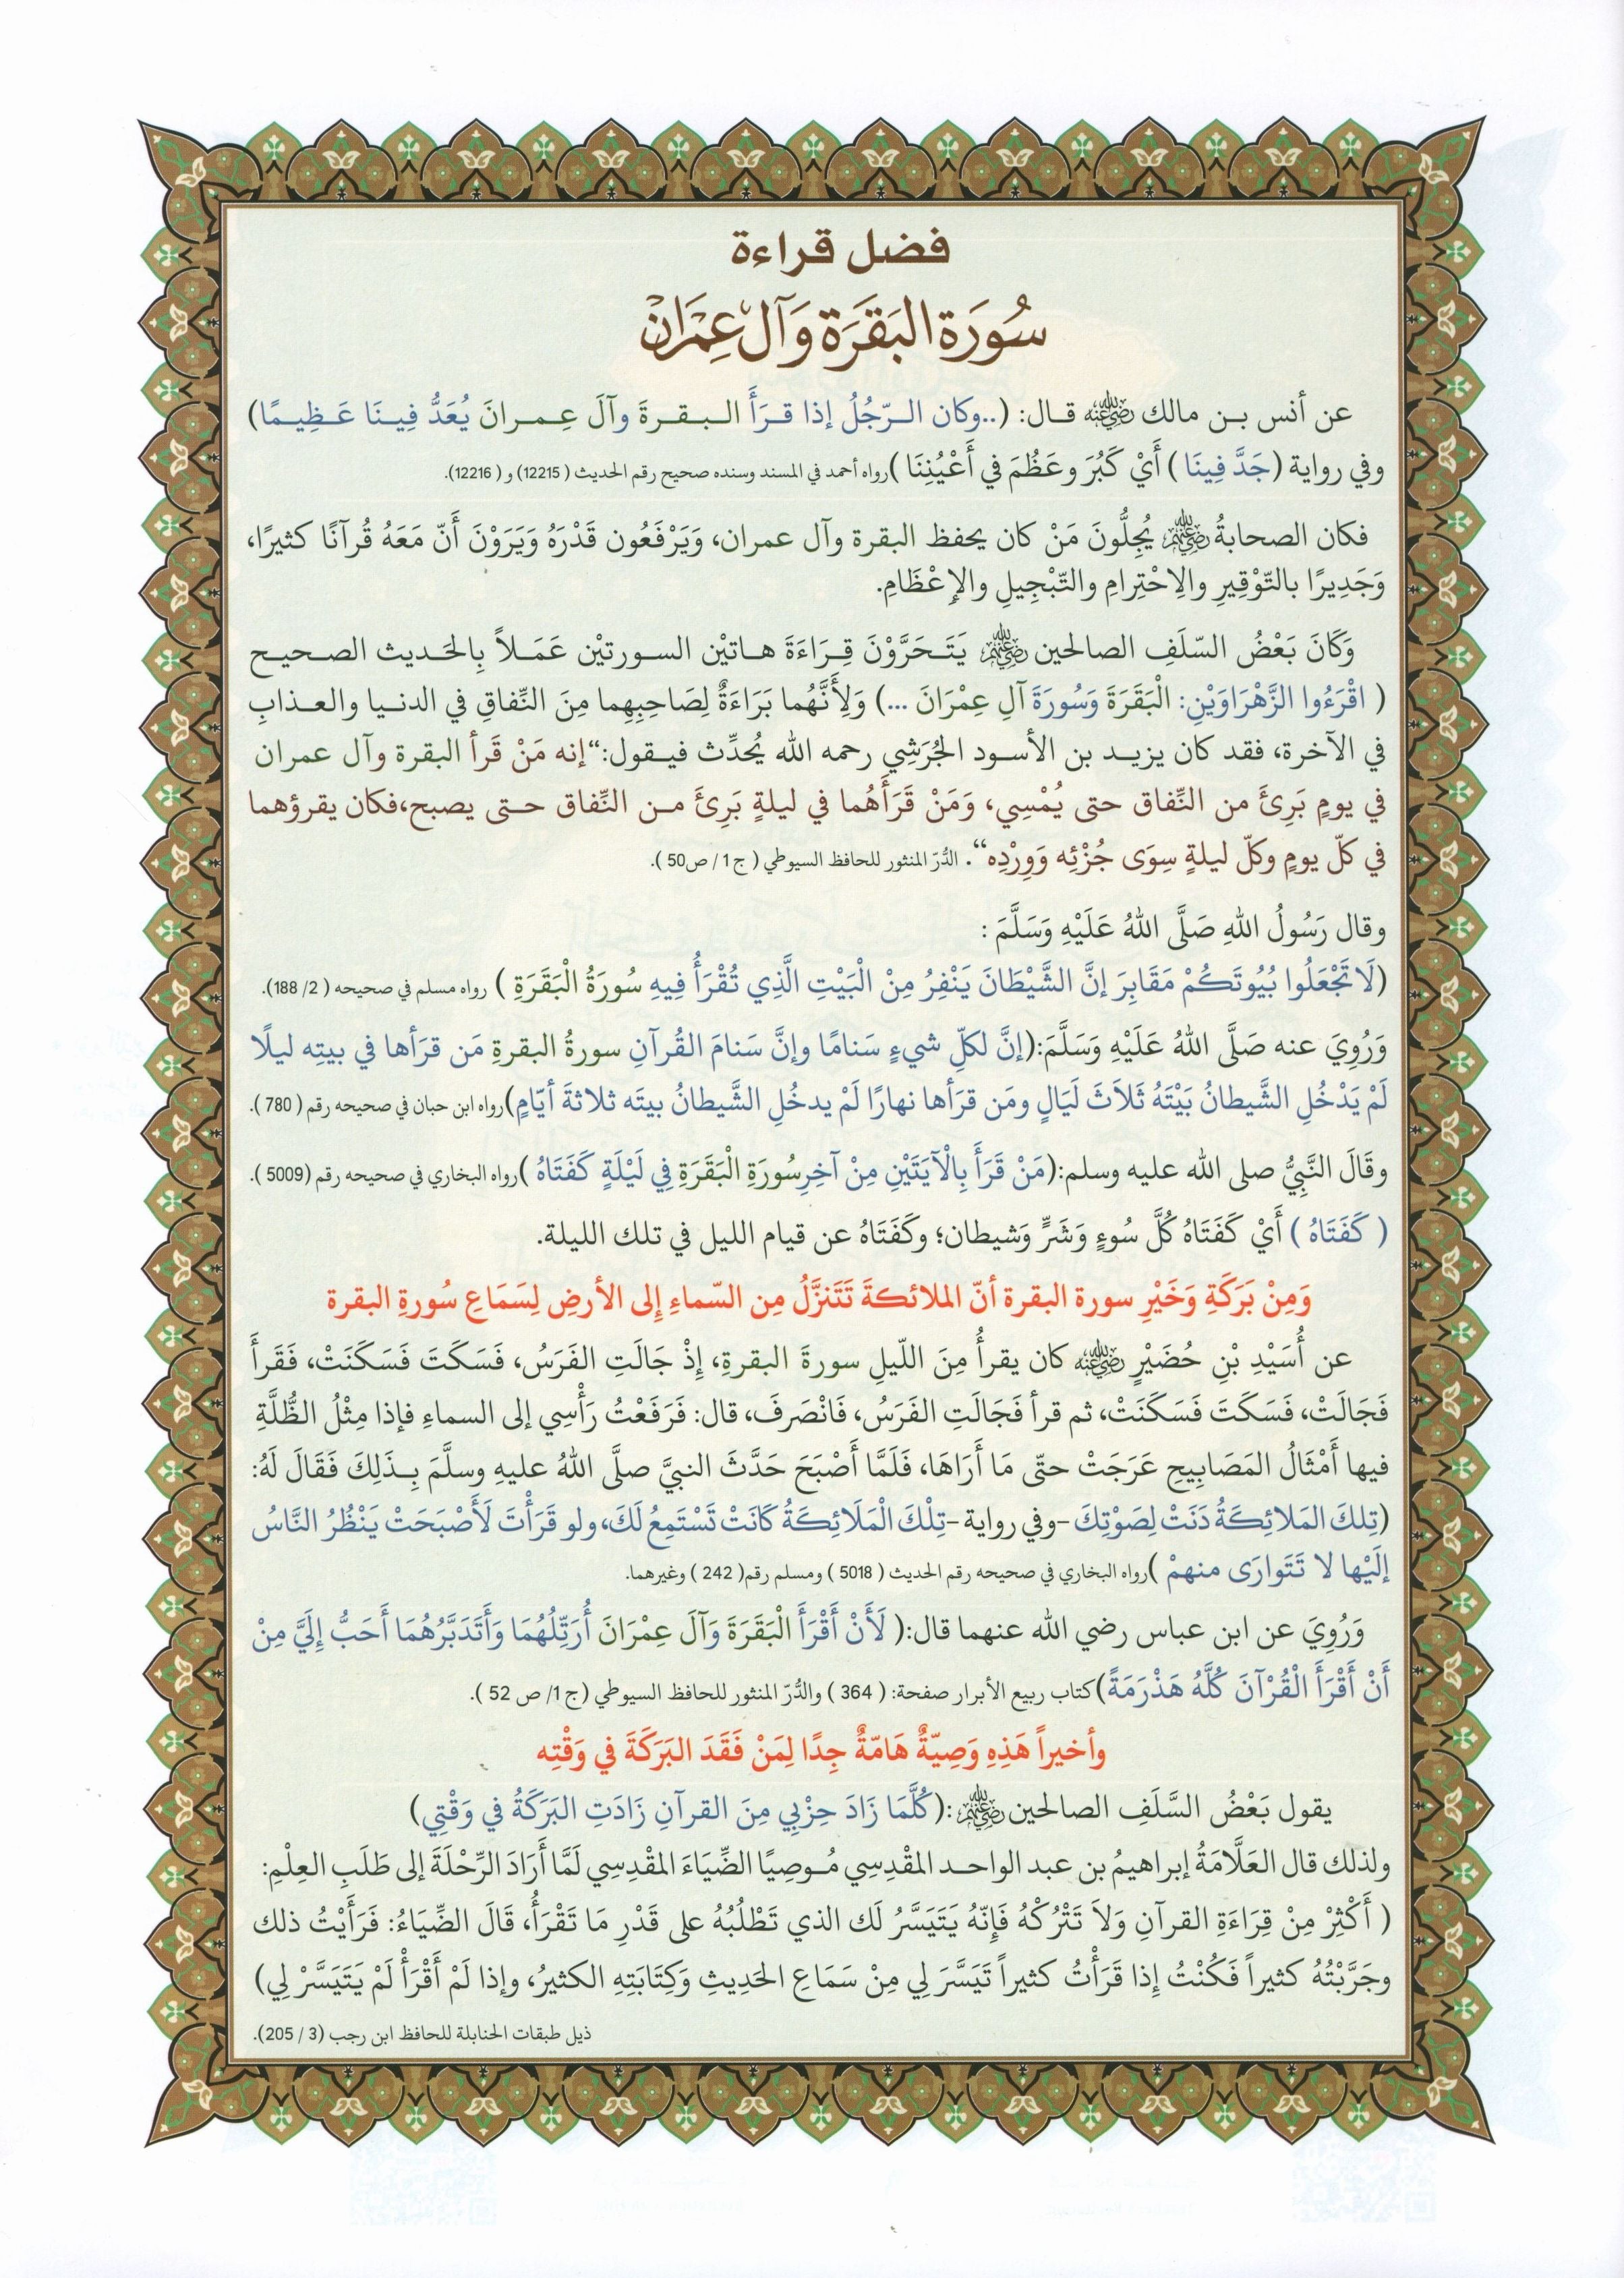 فضل قراءة
سُورَة البَقَرَة وَآل عِمْرَانْ
عن أنس بـن مالك رضي الله عنه قـال: (..وكان الـرّجُلُ إذا قـرَأَ الـبـقـرةَ وآلَ عِـمـرانَ يُعَدُّ فِينَا عَـظِيـمًا)
وفي رواية (جَدَّ فِينَا ) أَيْ كَبُرَ وعَظُمَ في أَعْيُنِنَا )رواه أحمد في المسند وسنده صحيح رقم الحديث ( 12215) و ( 12216).
فكان الصحابةُ رضي الله عنهم يُجِلُّونَ مَنْ كان يحفظ البقرة وآل عمران، وَيَرْفَعُون قَدْرَهُ وَيَرَوْنَ أَنّ مَعَهُ قُرآنًا كثيرًا،
وَجَدِيرًا بالتّوْقِيرِ والِاحْتِرامِ والتّبْجِيلِ والإعْظَامِ.
وَكَانَ بَعْضُ السّلَفِ الصالحين رضي الله عنهم يَتَـحَرَّوْنَ قِـرَاءَةَ هـاتيْن السـورتيْن عَمَـلاً بِالحَـديث الصـحيـح
( اقْرَءُوا الزَّهْرَاوَيْنِ: الْبَقَرَةَ وَسُورَةَ آلِ عِمْرَانَ ...) وَلِأَنَّهُما بَرَاءَةٌ لِصَاحِبِهِما مِنَ النِّفاقِ في الدنـيا والعـذابِ
في الآخرة، فقد كان يزيـد بن الأسـود الجُرَشِي رحمه الله يُحدِّث فيـقول:“إنه مَنْ قَرأ البقرة وآل عمران
في يومٍ بَرِئَ من النِّفاق حتى يُمْسِي، وَمَنْ قَرَأَهُما في ليلةٍ بَرِئَ مـن النِّفاق حـتى يصبح،فكان يقرؤهما
في كلّ يومٍ وكلّ ليلةٍ سِوَى جُزْئِه وَوِرْدِه“. الدُّرّ المنثور للحافظ السيوطي ( ج1 / ص50 ).
وقال رَسُولُ اللهِ صَلَّى اللهُ عَلَيْهِ وَسَلَّمَ :
(لَا تَجْعَلُوا بُيُوتَكُمْ مَقَابِرَ إنَّ الشَّيْطَانَ يَنْفِرُ مِنْ الْبَيْتِ الَّذِي تُقْرَأُ فِيهِ سُورَةُ الْبَقَرَةِ ) رواه مسلم في صحيحه ( 2/ 188).
وَرُوِيَ عنه صَلَّى اللهُ عَلَيْهِ وَسَلَّمَ:(إنَّ لكلِّ شيءٍ سَنامًا وإنَّ سَنامَ القُرآنِ سورةُ البقرةِ مَن قرَأها في بيتِه ليلًا
لَمْ يَدْخُلِ الشَّيطانُ بَيْتَهُ ثَلاَثَ لَيَالٍ ومَن قرَأها نهارًا لَمْ يدخُلِ الشَّيطانُ بيتَه ثلاثةَ أيّامٍ)رواه ابن حبان في صحيحه رقم ( 780 ).
وقَالَ النَّبِيُّ صلى الله عليه وسلم:(مَنْ قَرَأَ بِالْآيَتَيْنِ مِنْ آخِرِسُورَةِ الْبَقَرَةِ فِي لَيْلَةٍ كَفَتَاهُ )رواه البخاري في صحيحه رقم (5009 ).
( كَفَتَاهُ ) أَيْ كَفَتَاهُ كُلَّ سُوءٍ وَشَرٍّ وَشيطان؛ وكَفَتَاهُ عن قيام الليل في تلك الليلة.
وَمِنْ بَرَكَةِ وَخَيْرِ سورة البقرة أنّ الملائكةَ تَتَنزَّلُ مِن السّماءِ إلى الأرضِ لِسَمَاعِ سُورةِ البقرة
عن أُسَيْدِ بْنِ حُضَيْرٍ رضي الله عنه كان يقرأُ مِنَ اللّيلِ سورةَ البقرةِ، إذْ جَالَتِ الفَرَسُ، فَسَكَتَ فَسَكَنَتْ، فَقَرأَ
فَجَالَتْ، فَسَكَتَ فَسَكَنَتْ، ثم قرأ فَجَالَتِ الفَرَسُ، فَانْصَرفَ، قال: فَرَفَعْتُ رَأْسِي إلى السماءِ فإذا مِثْلُ الظُّلَّةِ
فيها أَمْثَالُ المَصَابِيحِ عَرَجَتْ حتّى مَا أَرَاهَا، فَلَمَّا أَصْبَحَ حَدَّثَ النبيَّ صلَّى اللهُ عليهِ وسلَّمَ بِـذَلِكَ فَقَالَ لَهُ:
(تِلكَ المَلائِكَةُ دَنَتْ لِصَوْتِكَ -وفي رواية -تِلْكَ الْمَلَائِكَةُ كَانَتْ تَسْتَمِعُ لَكَ،ولو قَرَأْتَ لَأَصْبَحَتْ يَنْظُرُ النَّاسُ
إلَيْها لا تَتَوارَى منهمْ )رواه البخاري في صحيحه رقم الحديث ( 5018 ) ومسلم رقم( 242 ) وغيرهما.
وَرُوِيَ عن ابن عباس رضي الله عنهما قال:( لَأَنْ أَقْرَأَ الْبَقَرَةَ وَآلَ عِمْرَانَ أُرَتِّلُهُمَا وَأَتَدَبَّرُهُمَا أَحَبُّ إلَيَّ مِنْ
أَنْ أَقْرَأَ الْقُرْآنَ كُلَّهُ هَذْرَمَةً)كتاب ربيع الأبرار صفحة: ( 364 ) والدُّرّ المنثور للحافظ السيوطي (ج 1/ ص 52 ).
وأخيراً هَذِهِ وَصِيّةٌ هَامّةٌ جِدًا لِمَنْ فَقَدَ البَرَكَةَ في وَقْتِه
يقول بَعْضُ السَّلَفِ الصالحين رضي الله عنهم :(كُلَّمَا زَادَ حِزْبِي مِنَ القرآنِ زَادَتِ البَرَكَةُ في وَقْتِي)
ولذلك قال العَلَّامَةُ إبراهيمُ بن عبد الواحـد المقْدِسِي مُـوصِيًا الضِّيَاءَ المقْدِسِي لَمَّا أَرَادَ الرِّحْلَةَ إلى طَلَبِ العِلْمِ:
( أَكْثِرْ مِنْ قِرَاءَةِ القرآنِ وَلاَ تَتْرُكْهُ فَإنّهُ يَتَيَسَّرُ لَك الذي تَطْلُبُهُ على قَدْرِ مَا تَقْرَأُ، قَالَ الضِّيَاءُ: فَرَأَيْتُ ذلك
وجَرَّبْتُهُ كثيراً فَكُنْتُ إذا قَرَأْتُ كثيراً تَيَسَّرَ لِي مِنْ سَمَاعِ الحَدِيثِ وَكِتَابَتِهِ الكثيرُ، وإذا لَمْ أَقْرَأْ لَمْ يَتَيَسَّرْ لِي)
ذيل طبقات الحنابلة للحافظ ابن رجب (3 / 205).